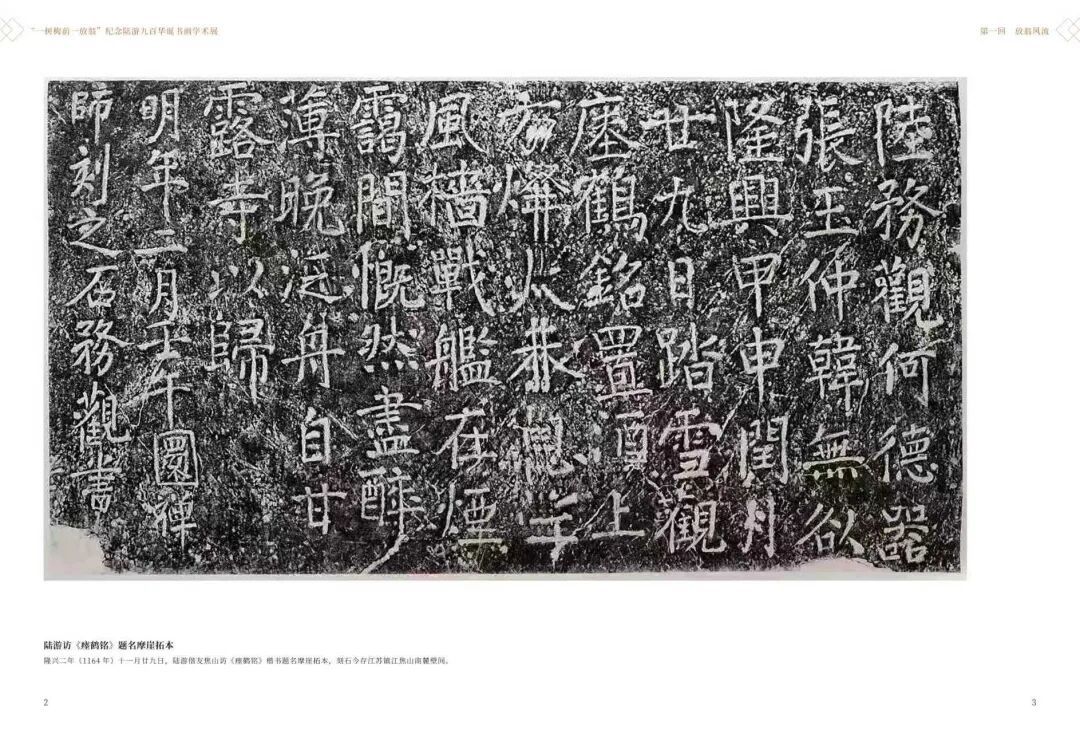 “一树梅前一放翁”纪念陆游九百华诞书画学术展
第一回 放翁风流
陸務觀何德器
張玉仲韓無咎
隆興甲申閏月
廿九日踏雪觀
瘞鶴銘置酒上
方烽火未息望
風檣戰艦在煙
靄間慨然盡醉
薄晚泛舟自甘
露寺以歸
明年二月壬午圜禪
師刻之石務觀書
陆游访《瘗鹤铭》题名摩崖拓本
隆兴二年（1164 年）十一月廿九日，陆游偕友焦山访《瘗鹤铭》楷书题名摩崖拓本，刻石今存江苏镇江焦山南麓壁间。
2
3